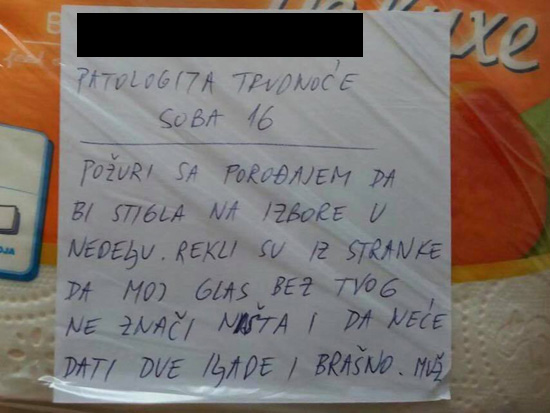 PATOLOGIJA TRUDNOĆE
SOBA 16
POŽURI SA POROĐAJEM DA
BI STIGLA NA IZBORE U
NEDELJU. REKLI SU IZ STRANKE
DA MOJ GLAS BEZ TVOG
NE ZNAČI NIŠTA I DA NEĆE
DATI DVE ILJADE I BRAŠNO. MUŽ